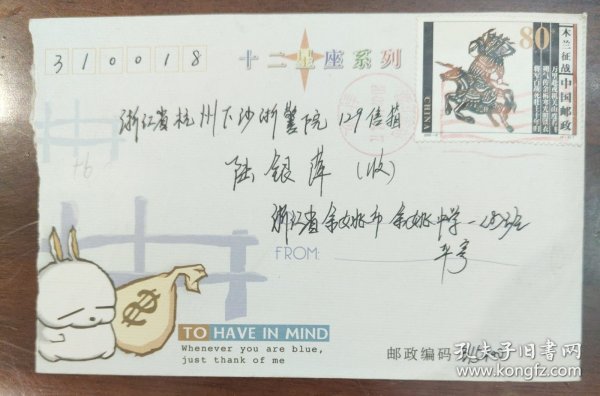 310018
十二星座系列
80
木兰征战
中国邮政
CHINA
浙江省杭州下沙浙警院129信箱
陆银萍(收)
浙江省余姚市余姚中学一(4)班
FROM:
TO HAVE IN MIND
Whenever you are blue,
just thank of me
邮政编码
孔夫子旧书网
kongfz.com